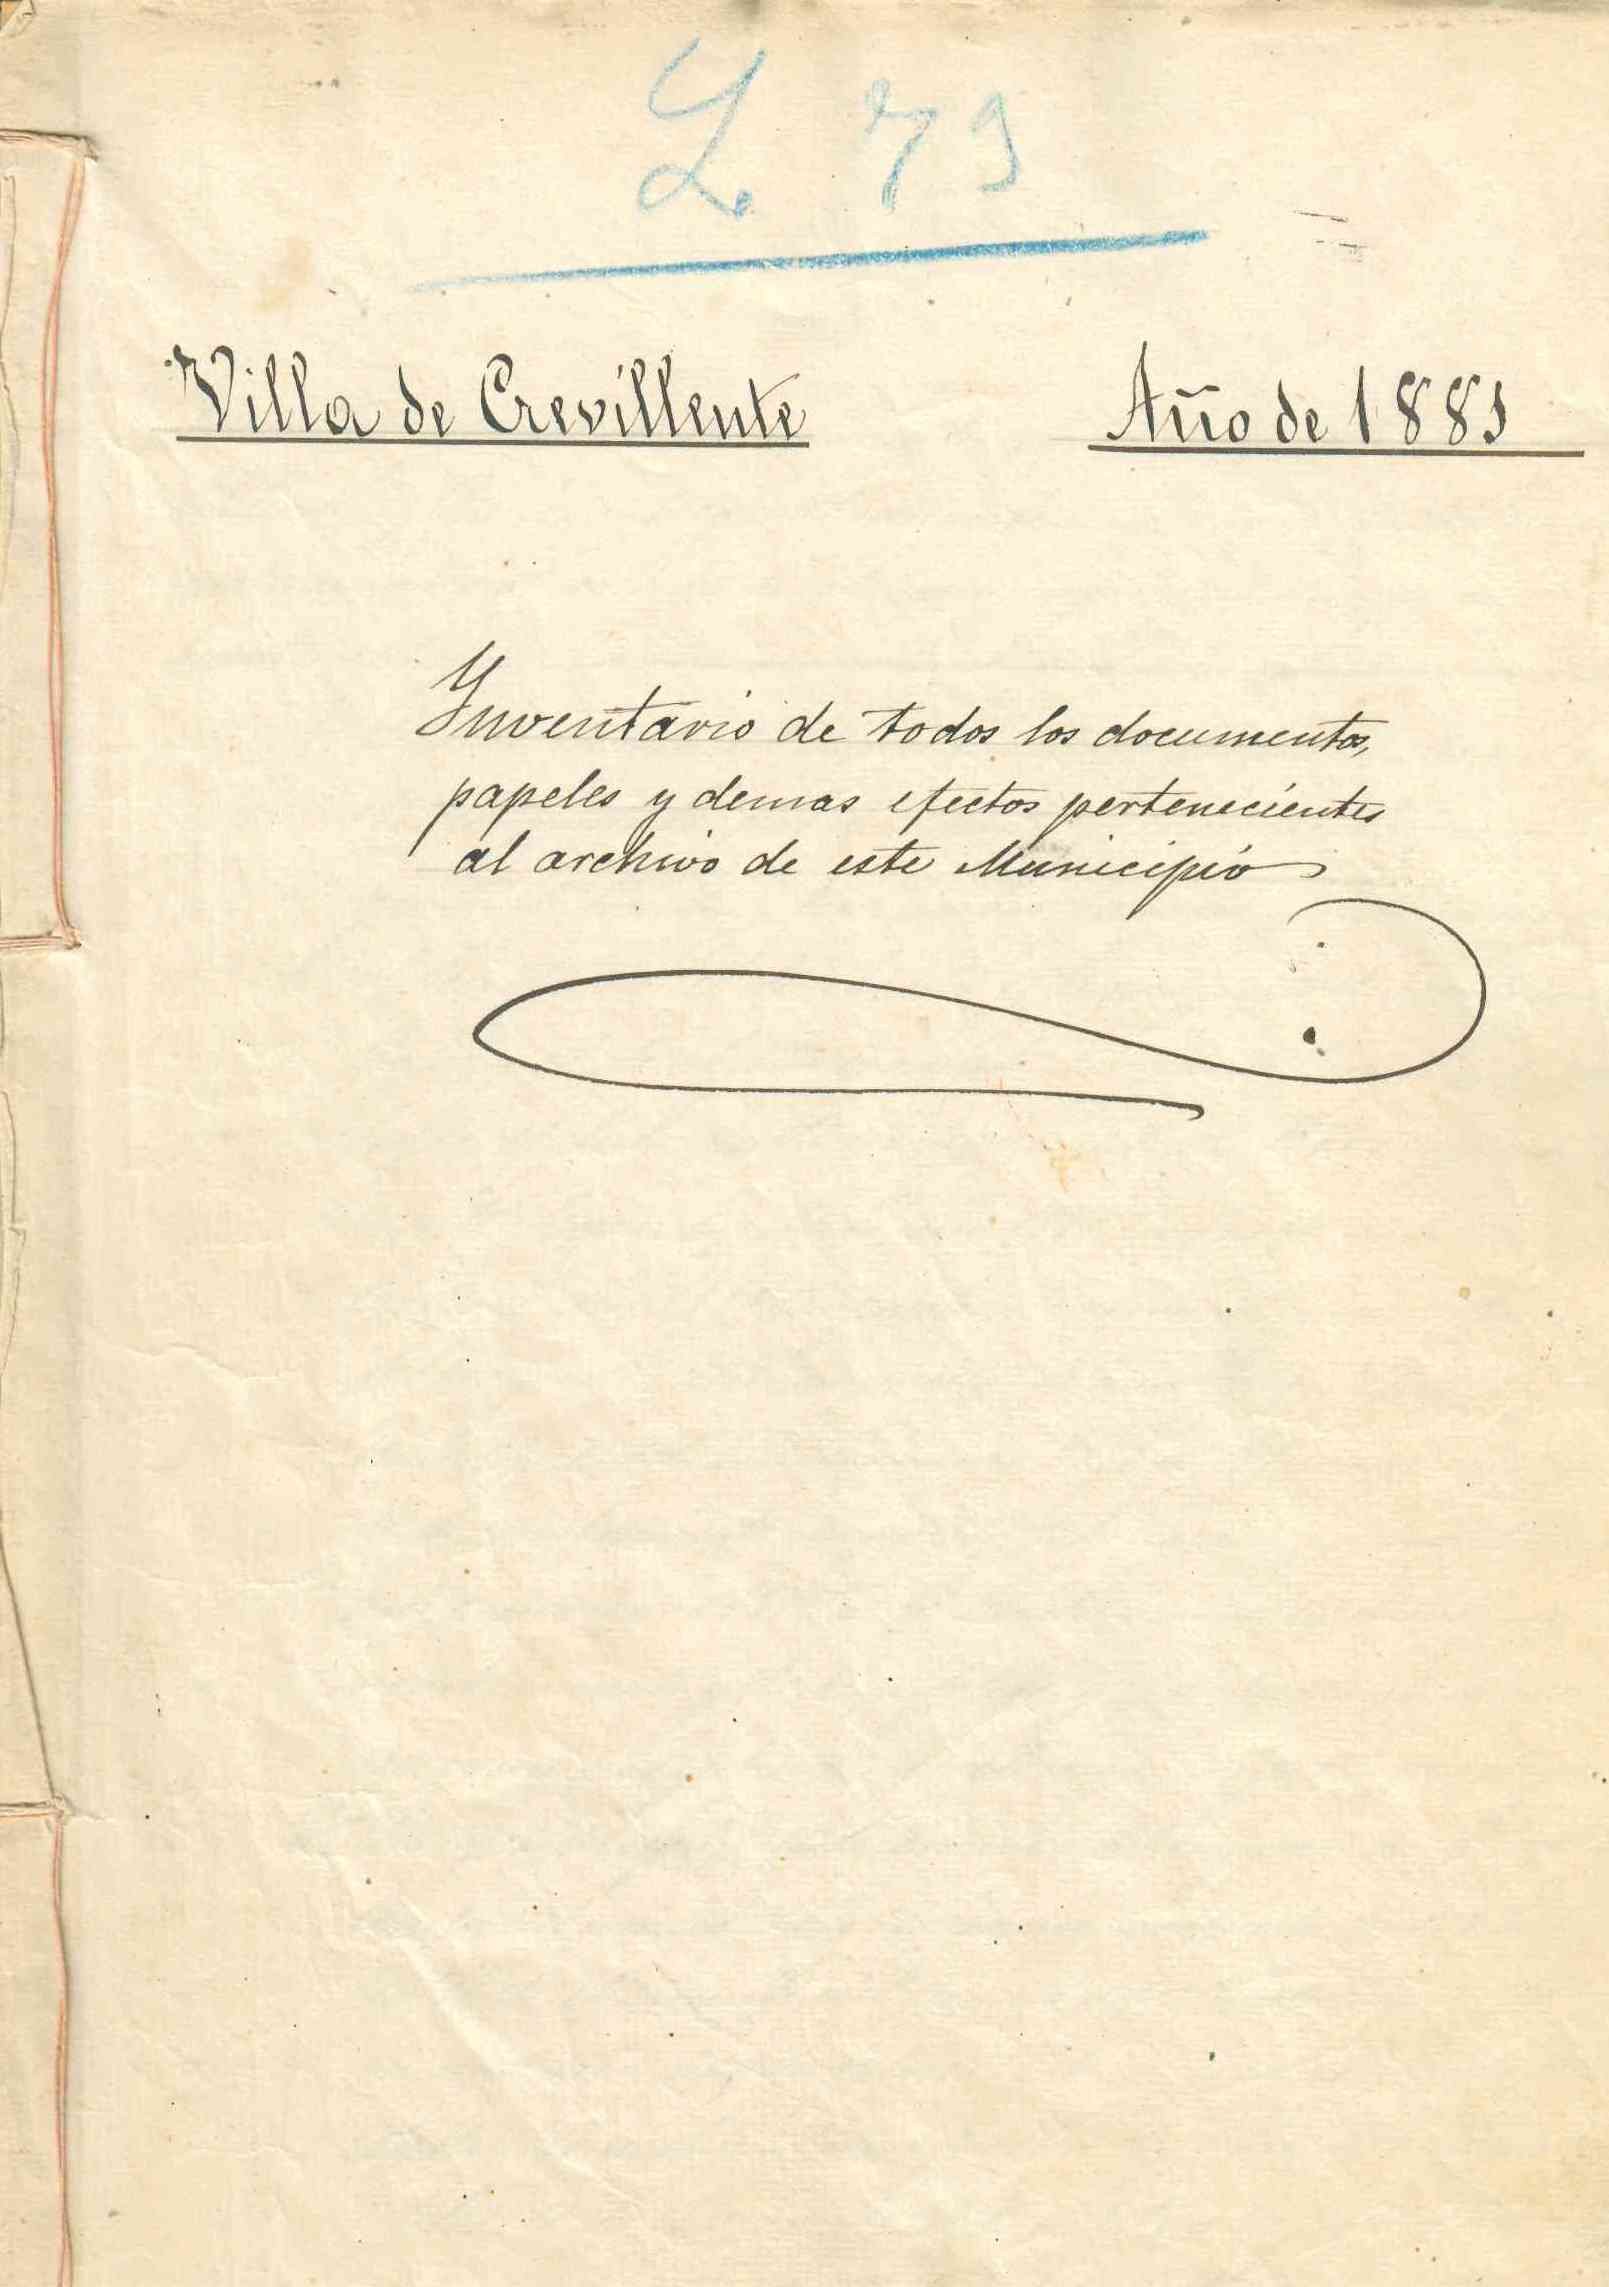 L. 79
Villa de Crevillente Año de 1889
Inventario de todos los documentos,
papeles y demas efectos pertenecientes
al archivo de este Municipio